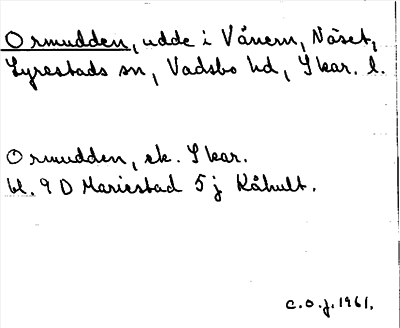 Ormudden, udde i Vänern, Näset,
Lyrestads sn, Vadsbo hd, Skar. l.
Ormudden, ek. Skar.
bl. 9 D Mariestad 5 j Kåhult.
c.o.j. 1961.